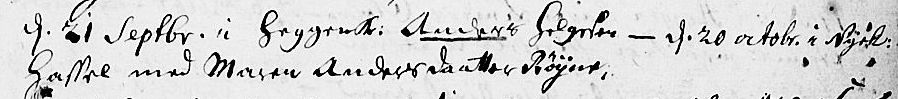 d. 21 Septbr. i Heggenk: Anders Helgesen — d. 20 octobr. i Nykk:
Hassel med Maren Andersdaatter Røyne,